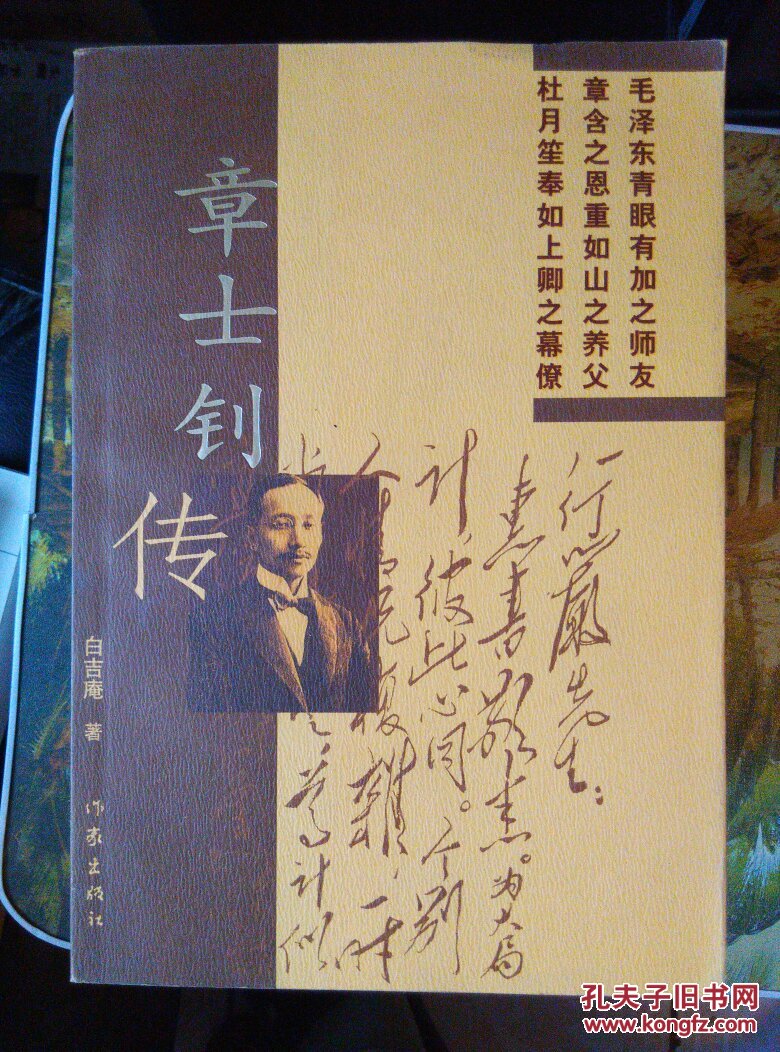 毛泽东青眼有加之师友
章含之恩重如山之养父
杜月笙奉如上卿之幕僚
章士钊
传
白吉庵 著
作家出版社
行严先生：
惠书敬悉。为大局
计，彼此心同。个别
人情况复杂，一时
为计似
孔夫子旧书网
www.kongfz.com